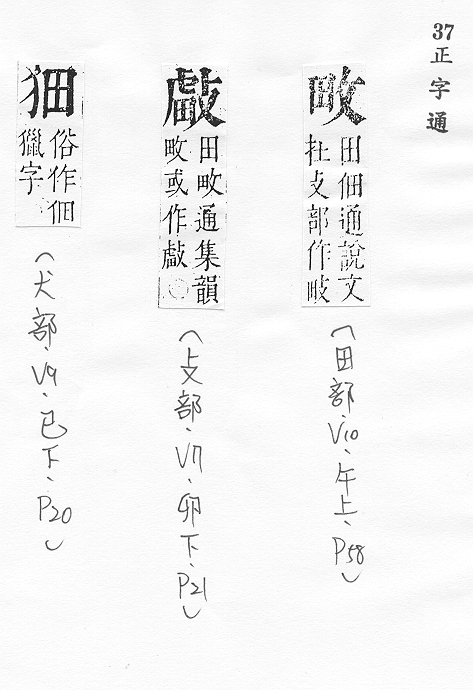 37
正字通
畋
田佃通說文
在攴部作畋
(田部、V10、午上、P58)
田畋通集韻
畋或作
(攴部、V7、卯下、P21)
𤝗
俗作佃
獵字
(犬部、V9、巳下、P20)